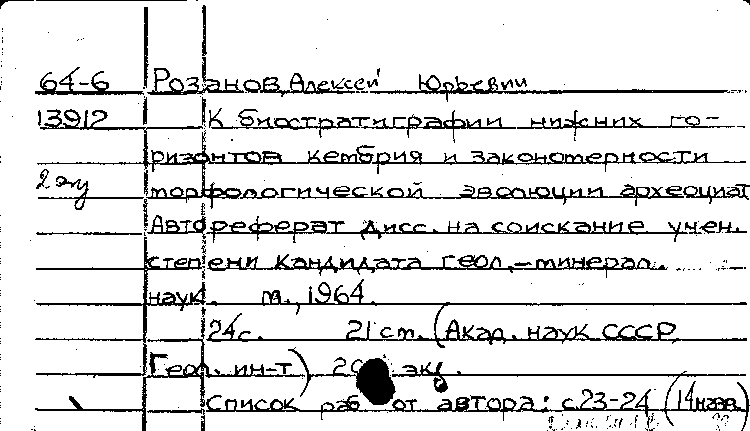 64-6 Розанов, Алексей Юрьевич
13912 К биостратиграфии нижних го-
ризонтов кембрия и закономерности
2 экз морфологической эволюции археоциат
Автореферат дисс. на соискание учен.
степени кандидата геол.-минерал.
наук. М., 1964.
24с. 21 см. (Акад. наук СССР,
Геол. ин-т) экз.
Список раб от автора: с.23-24 (14 назв.)